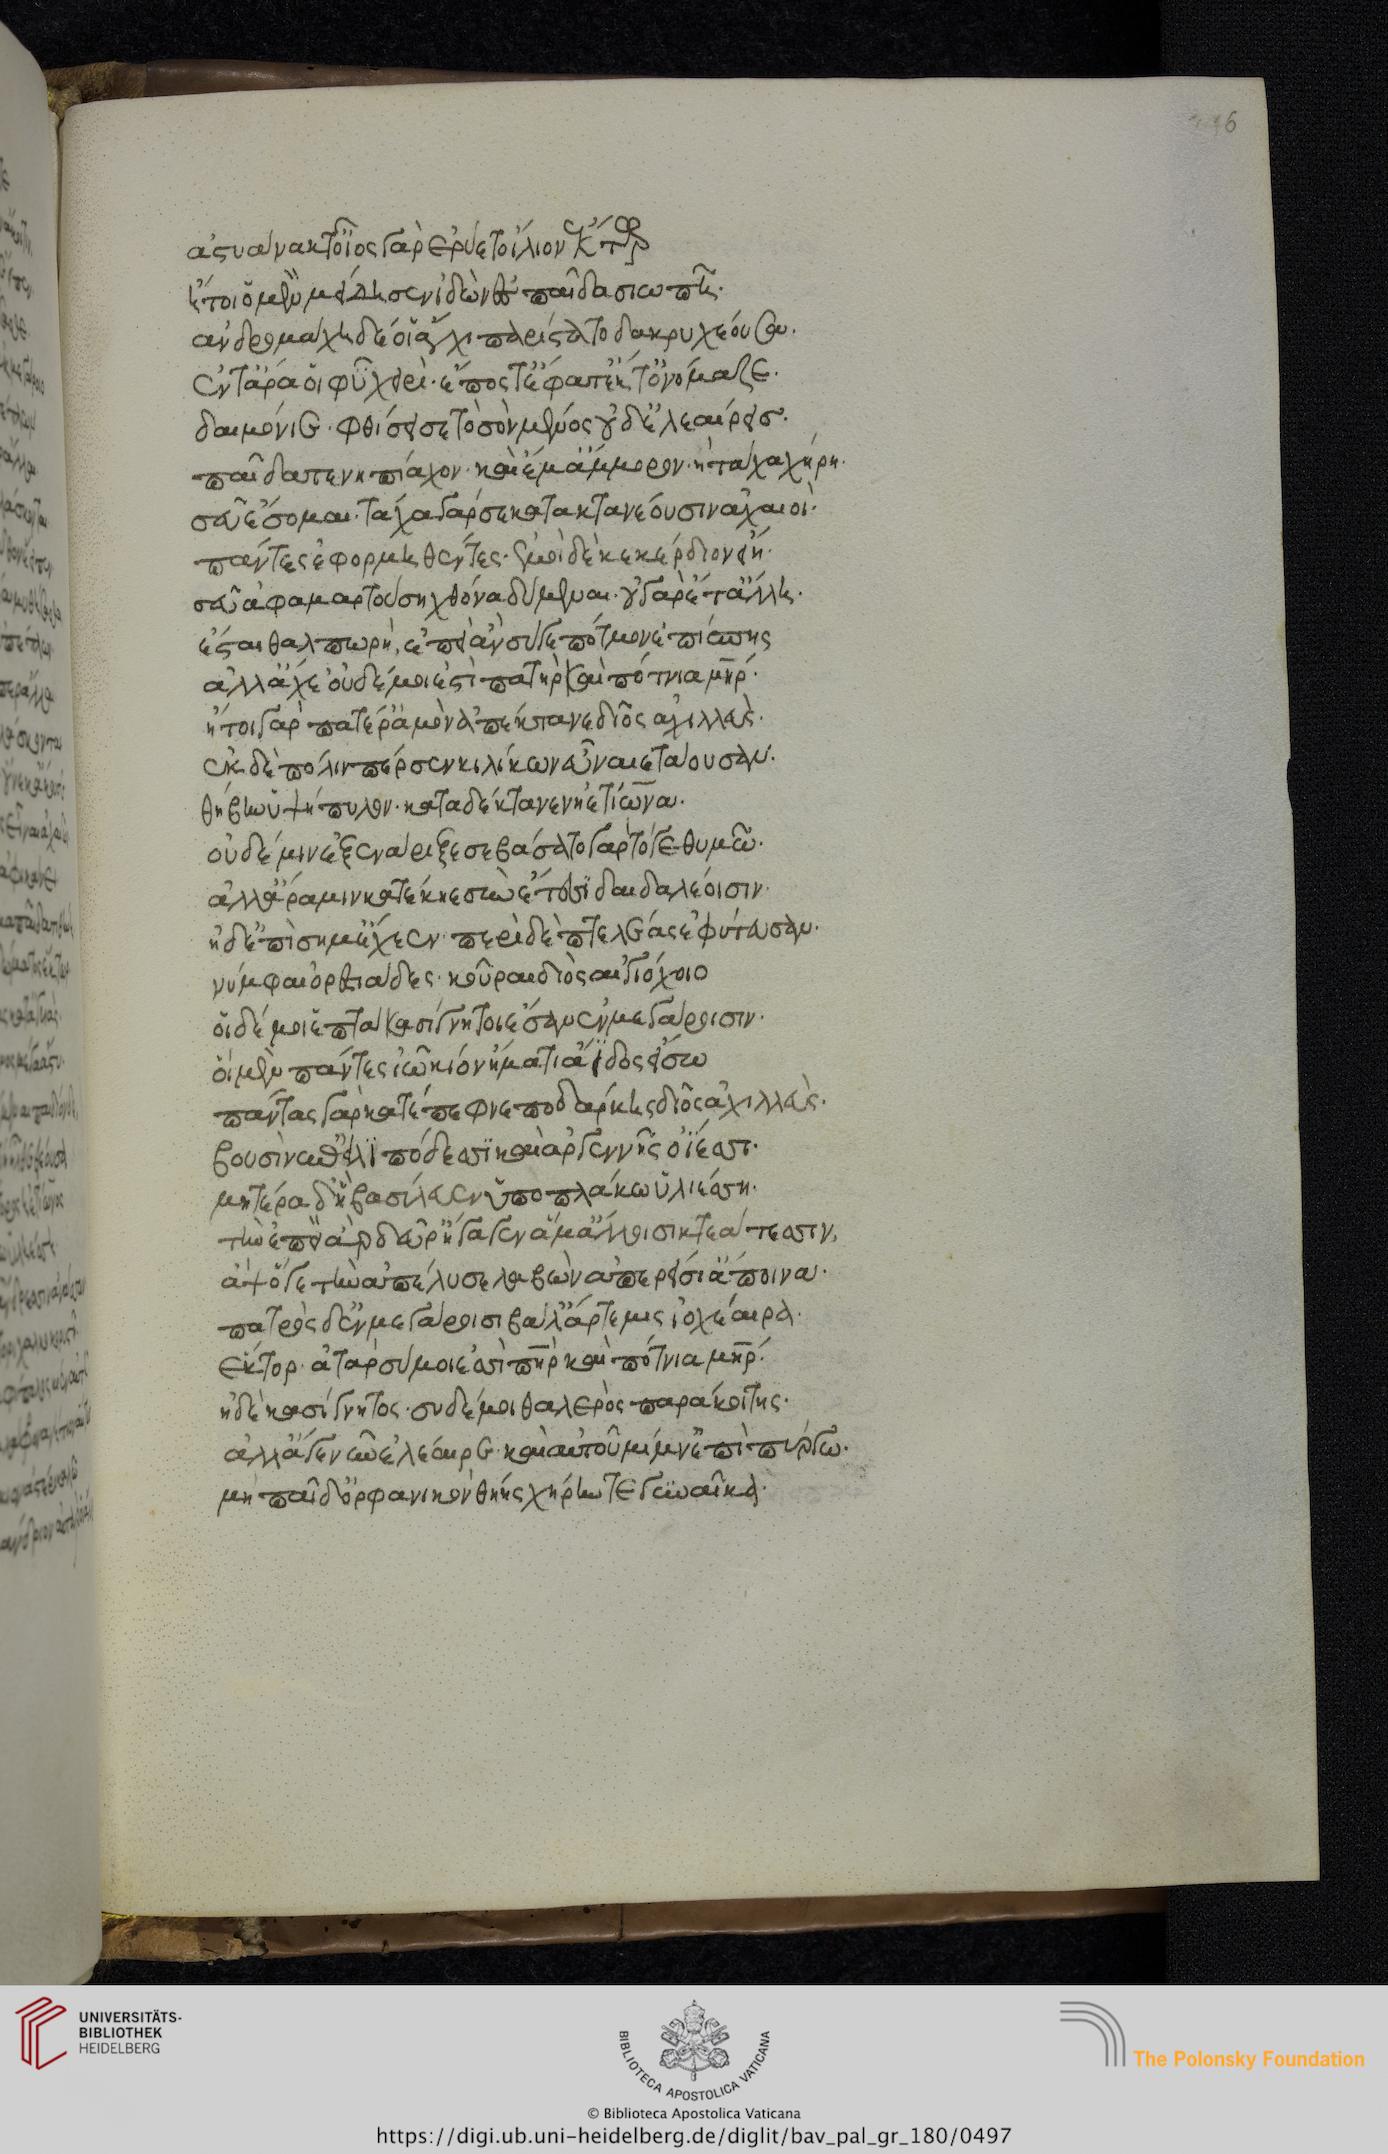 ἀστυάνακτ' οἶος γὰρ ἐρύετο ἴλιον ἕκτωρ
ἤτοι ὃ μὲν μείδησεν ἰδὼν ἐς παῖδα σιωπῆ.
ἀνδρομάχη δέ οἱ ἄγχι παρίστατο δακρυχέουσα.
ἔν τ' ἄρα οἱ φῦ χειρὶ. ἔπος τ' ἔφατ' ἔκ τ' ὀνόμαζε.
δαιμόνιε. φθίσει σε τὸ σὸν μένος οὐδ' ἐλεαίρεις.
παῖδά τε νηπίαχον. καὶ ἔμ' ἄμμορον. ἢ τάχα χήρη.
σεῦ ἔσομαι. τάχα γάρ σε κατακτανέουσιν ἀχαιοὶ.
πάντες ἐφορμηθέντες. ἐμοὶ δέ κε κέρδιον εἴη.
σεῦ ἀφαμαρτούση χθόνα δύμεναι. οὐ γὰρ ἔτ' ἄλλη.
ἔσται θαλπωρὴ, ἐπεὶ ἂν σύ γε πότμον ἐπίσπης
ἀλλ' ἄχε' οὐδέ μοι ἐστὶ πατὴρ καὶ πότνια μήτηρ.
ἤτοι γὰρ πατέρ' ἁμὸν ἀπέκτανε δῖος ἀχιλλεὺς.
ἐκ δὲ πόλιν πέρσεν κιλίκων εὖ ναιετάουσαν.
θήβην ὑψήπυλον. κατὰ δ' ἔκτανεν ἠετίωνα.
οὐδέ μιν ἐξενάριξε σεβάσατο γὰρ τό γε θυμῶ.
ἀλλ' ἄρα μιν κατέκηε σὺν ἔντεσι δαιδαλέοισιν.
ἠδ' ἐπὶ σῆμ' ἔχεεν. περὶ δὲ πτελέας ἐφύτευσαν.
νύμφαι ὀρεστιάδες. κοῦραι διὸς αἰγιόχοιο
οἳ δέ μοι ἑπτὰ κασίγνητοι ἔσαν ἐν μεγάροισιν.
οἳ μὲν πάντες ἰῶ κίον ἤματι ἄϊδος εἴσω
πάντας γὰρ κατέπεφνε ποδάρκης δῖος ἀχιλλεὺς.
βουσὶν ἐπ' εἰλιπόδεσσι καὶ ἀργεννῆς ὀΐεσσι.
μητέρα δ' ἣ βασίλευεν ὑπὸ πλάκω ὑληέσση.
τὴν ἐπεὶ ἂρ δεῦρ' ἤγαγεν ἅμ' ἄλλοισι κτεάτεσσιν,
ἂψ ὅ γε τὴν ἀπέλυσε λαβὼν ἀπερείσι' ἄποινα.
πατρὸς δ' ἐν μεγάροισι βάλ' ἄρτεμις ἰοχέαιρα.
ἕκτορ. ἀτὰρ σύ μοι ἐσσὶ πατὴρ καὶ πότνια μήτηρ.
ἠδὲ κασίγνητος. σὺ δέ μοι θαλερὸς παρακοίτης.
ἀλλ' ἄγε νῦν ἐλέαιρε. καὶ αὐτοῦ μίμν' ἐπὶ πύργω.
μὴ παῖδ' ὀρφανικὸν θήης χήρην τε γυναῖκα.
UNIVERSITÄTS-
BIBLIOTHEK
HEIDELBERG
BIBLIOTECA APOSTOLICA VATICANA
The Polonsky Foundation
© Biblioteca Apostolica Vaticana
https://digi.ub.uni-heidelberg.de/diglit/bav_pal_gr_180/0497